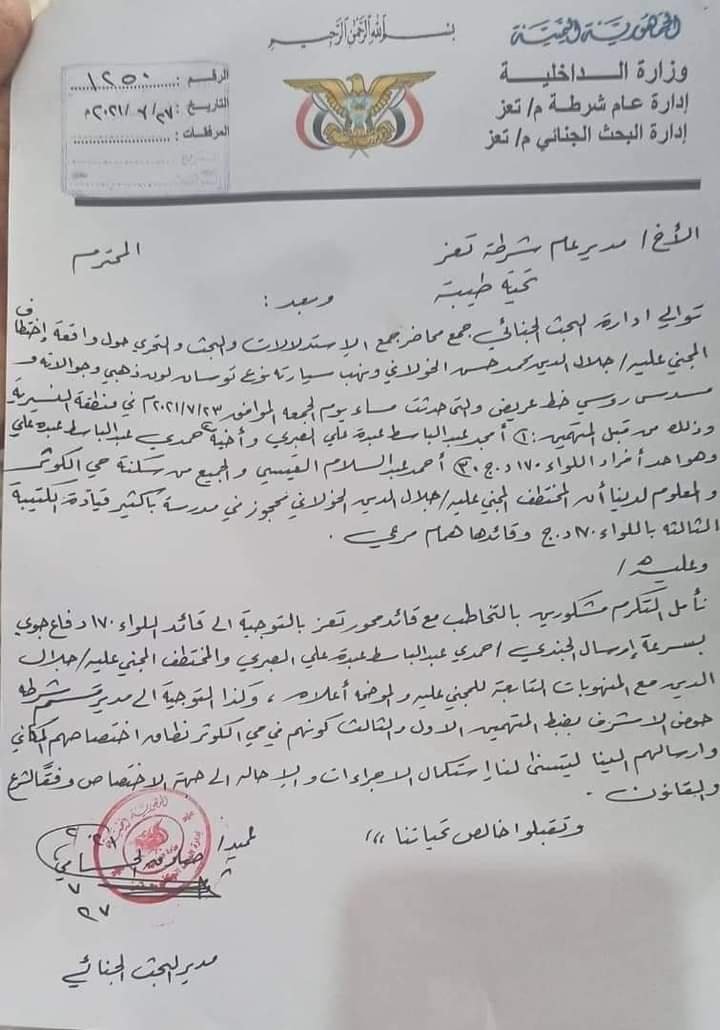 بسم الله الرحمن الرحيم
الجمهورية اليمنية
وزارة الداخلية
إدارة عام شرطة م/ تعز
إدارة البحث الجنائي م/ تعز
الرقم : ١٢٥٠
التاريخ : ٢٧/٧/٢٠٢١م
المرفقات :
الأخ/ مدير عام شرطة تعز المحترم
تحية طيبة وبعد :
توالي ادارة البحث الجنائي جمع محاضر جمع الإستدلالات والبحث والتحري حول واقعة إختطاف
المجني عليه/ جلال الدين محمد حسن الخولاني ونهب سيارته نوع توسان لون ذهبي وجوالاته و
مسدس روسي خط عريض والتي حدثت مساء يوم الجمعه الموافق ٢٣/٧/٢٠٢١م في منطقة النسيرية
وذلك من قبل المتهمين : ١) أمجد عبدالباسط عبدة علي الصبري و أخية حمدي عبدالباسط عبدة علي
وهو احد أفراد اللواء ١٧٠ د.ج ٣) أحمد عبدالسلام العيسي والجميع من سكنة حي الكوثر
والمعلوم لدينا أن المختطف المجني عليه/ جلال الدين الخولاني محجوز في مدرسة باكثير قيادة الكتيبة
الثالثه باللواء ١٧٠ د.ج وقائدها همام مرعي .
وعليه /
نأمل التكرم مشكورين بالتخاطب مع قائد محور تعز بالتوجية الى قائد اللواء ١٧٠ دفاع جوي
بسرعة إرسال الجندي / حمدي عبدالباسط عبدة علي الصبري والمختطف المجني عليه/ جلال
الدين مع المنهوبات التابعة للمجني عليه والموضحة أعلاه ، وكذا التوجية الى مدير قسم شرطة
حوض الاشرف بضبط المتهمين الاول والثالث كونهم في حي الكوثر نطاق اختصاصهم المكاني
وارسالهم الينا ليتسنى لنا إستكمال الاجراءات والإحاله الى جهة الإختصاص وفقا للشرع
والقانون .
وتقبلوا خالص تحياتنا ،،،
عميد/
٧
٢٧
مدير البحث الجنائي